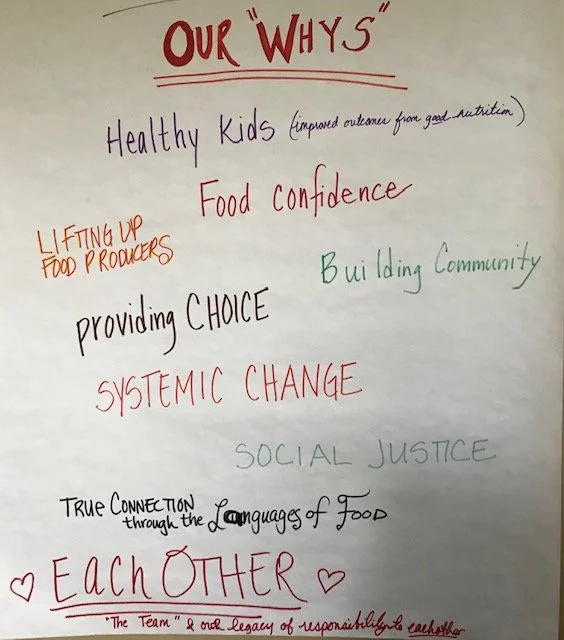 OUR "WHYS"
Healthy Kids (improved outcomes from good nutrition)
Food confidence
LIFTING UP
FOOD PRODUCERS
Building Community
providing CHOICE
SYSTEMIC CHANGE
SOCIAL JUSTICE
TRUE CONNECTION
through the Languages of FOOD
♡ EachOTHER ♡
"The Team" & our legacy of responsibility to eachother